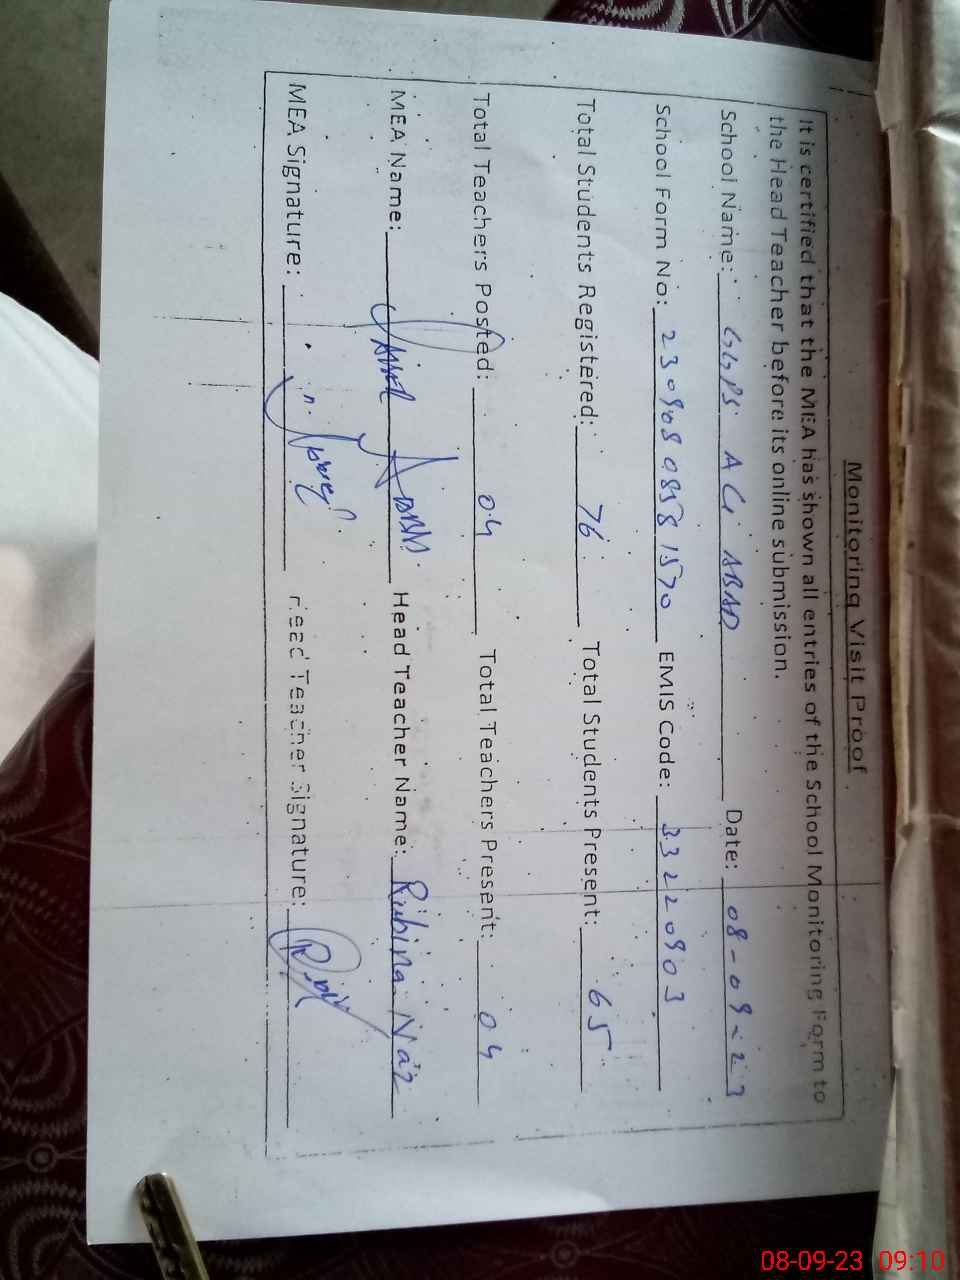 Monitoring Visit Proof
It is certified that the MEA has shown all entries of the School Monitoring Form to
the Head Teacher before its online submission.
School Name: GGPS ALI ABAD Date: 08-09-23
School Form No: 23090808581570 EMIS Code: 33220903
Total Students Registered: 76 Total Students Present: 65
Total Teachers Posted: 04 Total Teachers Present: 04
MEA Name: Head Teacher Name: Rubina Naz
MEA Signature: Head Teacher Signature:
08-09-23 09:10